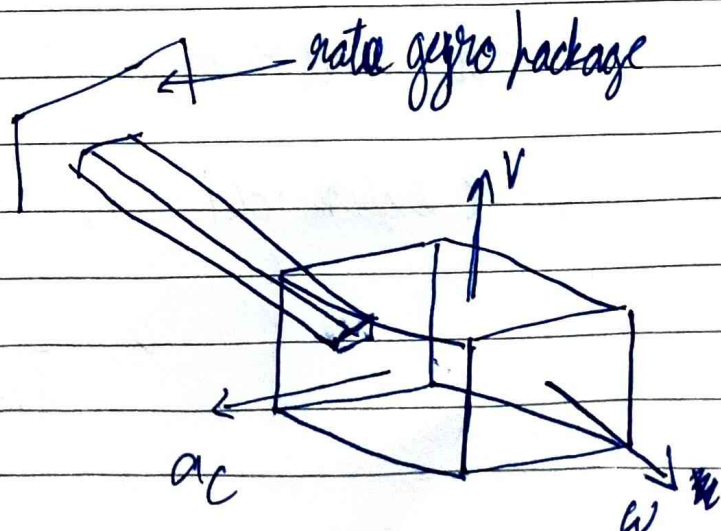 rate gyro package
V
ac
ω